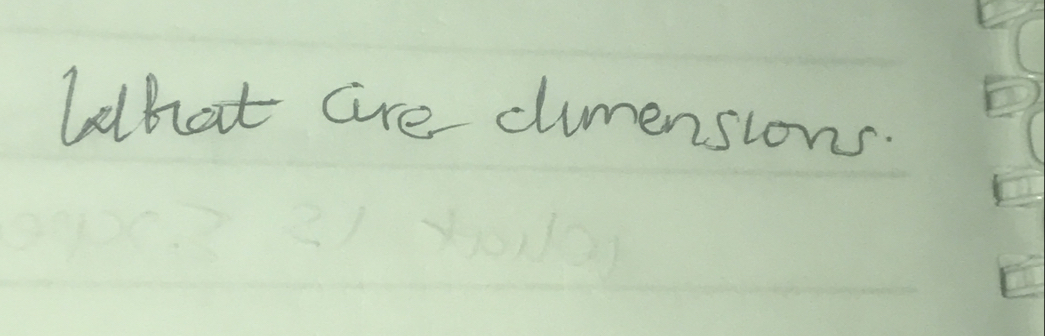 What are dimensions.